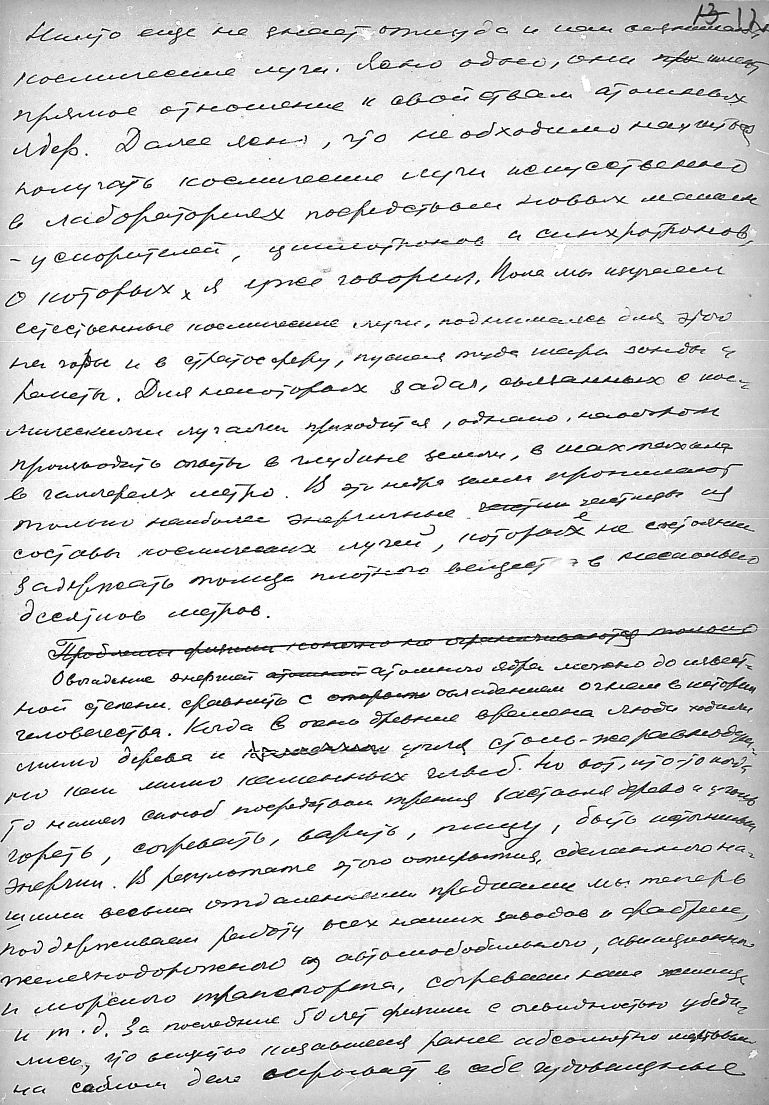 13 12.
Никто еще не знает откуда и как возникают
космические лучи. Ясно одно, они при имеют
прямое отношение к свойствам атомных
ядер. Далее ясно, что необходимо научиться
получать космические лучи искусственно
в лабораториях посредством новых машин
- ускорителей, циклотронов и синхротронов,
о которых я уже говорил. Пока мы изучаем
естественные космические лучи, поднимаясь для этого
на горы и в стратосферу, пуская туда шары зонды и
ракеты. Для некоторых задач, связанных с кос-
мическими лучами приходится, однако, наоборот
производить опыты в глубине земли, в шахтах или
в галлереях метро. В эти недра земли проникают
только наиболее энергичные частии частицы из
состава космических лучей, которые не в состоянии
задержать толща плотного вещества в несколько
десятков метров.
Проблемы физики конечно не ограничиваются только
Овладение энергией атомной атомного ядра можно до извест-
ной степени сравнить с открыти овладением огнем в истории
человечества. Когда в очень древние времена люди ходили
мимо дерева и угля столь же равнодуш-
но как мимо каменных глыб. Но вот, кто-то когда-
то нашел способ посредством трения заставить дерево и уголь
гореть, согревать, варить, пищу, быть источником
энергии. В результате этого открытия, сделанного на-
шими весьма отдаленными предками мы теперь
поддерживаем работу всех наших заводов и фабрик,
железнодорожного и автомобильного, авиационного
и морского транспорта, согреваем наше жилище
и т.д. За последние 50 лет физики с очевидностью убеди-
лись, что вещество казавшееся ранее абсолютно мертвым
на самом деле скрывает в себе чудовищные